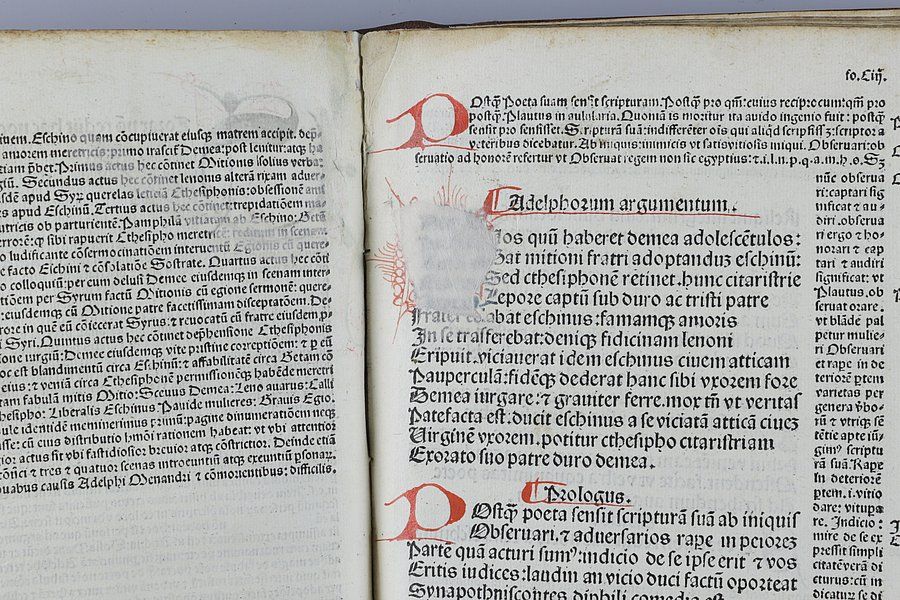 fo.Ciiȷ.
inem. Eschino quam cōcupiuerat eiusq; matrem accipit. dep̄
amorem meretricis: primo irascit̄ Demea: post lenitur: atq; ha
etiam p̄bet. Primus actus hec cōtinet Mitionis solius verba:
giū. Secundus actus hec cōtinet lenonis alterā rixam aduer
sdē apud Syrū querelas Cthesiphonis: obsessionē
es apud Eschinū. Tertius actus hec cōtinet: trepidatiōem ma
utricis ob parturientē. Pamphilā vitiatam ab Eschino: Getā
errorē: q; sibi rapuerit Cthesipho meretricē: reditum in scenam
o ludificante cōsermocinatiōem interuentū Egionis cū quere
e facto Eschini & cōsolatiōe Sostrate. Quartus actus hec cōti
o colloquiū: per eum delusū Demee eiusdemq; in scenam inter
tiōem per Syrum factū Mitionis cū egione sermonē: quere
: eiusdemq; cū Mitione patre facetissimam disceptatōem. De
rore in quē eū cōiecerat Syrus: & reuocatū cū fratre eiusdem
ū Syri. Quintus actus hec cōtinet dep̄hensiōne Cthesiphonis
one iurgiū: Demee eiusdemq; vite pristine correptiōem: & p eū
oc est blandimentū circa Eschinū: & affabilitatē circa Getam cō
eius: & veniā circa Cthesiphonē permissionēq; habēde meretri
tam fabulā mitis Mitio: Seuus Demea: Leno auarus: Calli
hesipho: Liberalis Eschinus Pauide mulieres: Grauis Egio.
ule identidē meminerimus primū: pagine dinumerationē neq;
asse: cū eius distributio hmōi rationem habeat: vt vbi attentior
gior actus fit vbi fastidiosior breuior atq; cōstrictior. Deinde etiā
cōnci & tres & quatuor scenas introeuntiū atq; exeuntiū psonar.
uabus causis Adelphi Menandri & cōmorientibus: difficilis.
Postq̄ Poeta suam sensit scripturam. Postq̄ pro qm̄: cuius reciprocum: qm̄ pro
postq̄ Plautus in aulularia. Quoniā is moritur ita auido ingenio fuit: postq̄
sensit pro sensisset. Scripturā suā: indifferēter ois qui aliqd scripsiss3: scriptor a
veteribus dicebatur. Ab iniquis: inimicis vt satis vitiosis iniqui. Obseruari: ob
seruatio ad honorē refertur vt Obseruat regem non sic egyptius: t.i.l.n.p.q.a.m.h.o. S3
Adelphorum argumentum.
uos quū haberet demea adolescētulos:
Dat mitioni fratri adoptanduz eschinū:
Sed cthesiphonē retinet. hunc citaristrie
Lepore captū sub duro ac tristi patre
Frater celabat eschinus: famamq; amoris
In se trasferebat: deniq; fidicinam lenoni
Eripuit. viciauerat idem eschinus ciuem atticam
Pauperculā: fidēq; dederat hanc sibi vxorem fore
Demea iurgare: & grauiter ferre. mox tn̄ vt veritas
Patefacta est: ducit eschinus a se viciatā atticā ciuez
Virginē vxorem. potitur cthesipho citaristriam
Exorato suo patre duro demea.
Prologus.
Postq̄ poeta sensit scripturā suā ab iniquis
Obseruari. & aduersarios rape in peiorez
Partē quā acturi sumꝰ: indicio de se ipse erit & vos
Eritis iudices: laudin an vicio duci factū oporteat
Synapothniscontes diphili comedia est
nūc obserua
ri: captari sig
nificat & au
diri. obserua
ri ergo & ho
norari & cap
tari & audiri
significat: vt
Plautus. ob
seruat orare.
vt blāde pal
petur mulie
ri Obseruari
et rape in de
teriorē ptem
varietas per
genera vbo
rū & vtriq; sē
tētie apte iū
gim̄ scriptu
rā suā. Rape
In deteriorē
ptem. i. vitio
dare: vitupa
re. Indicio:
mire de se ex
pressit simpli
citatē verā di
cturus: cū in
dicatur se di